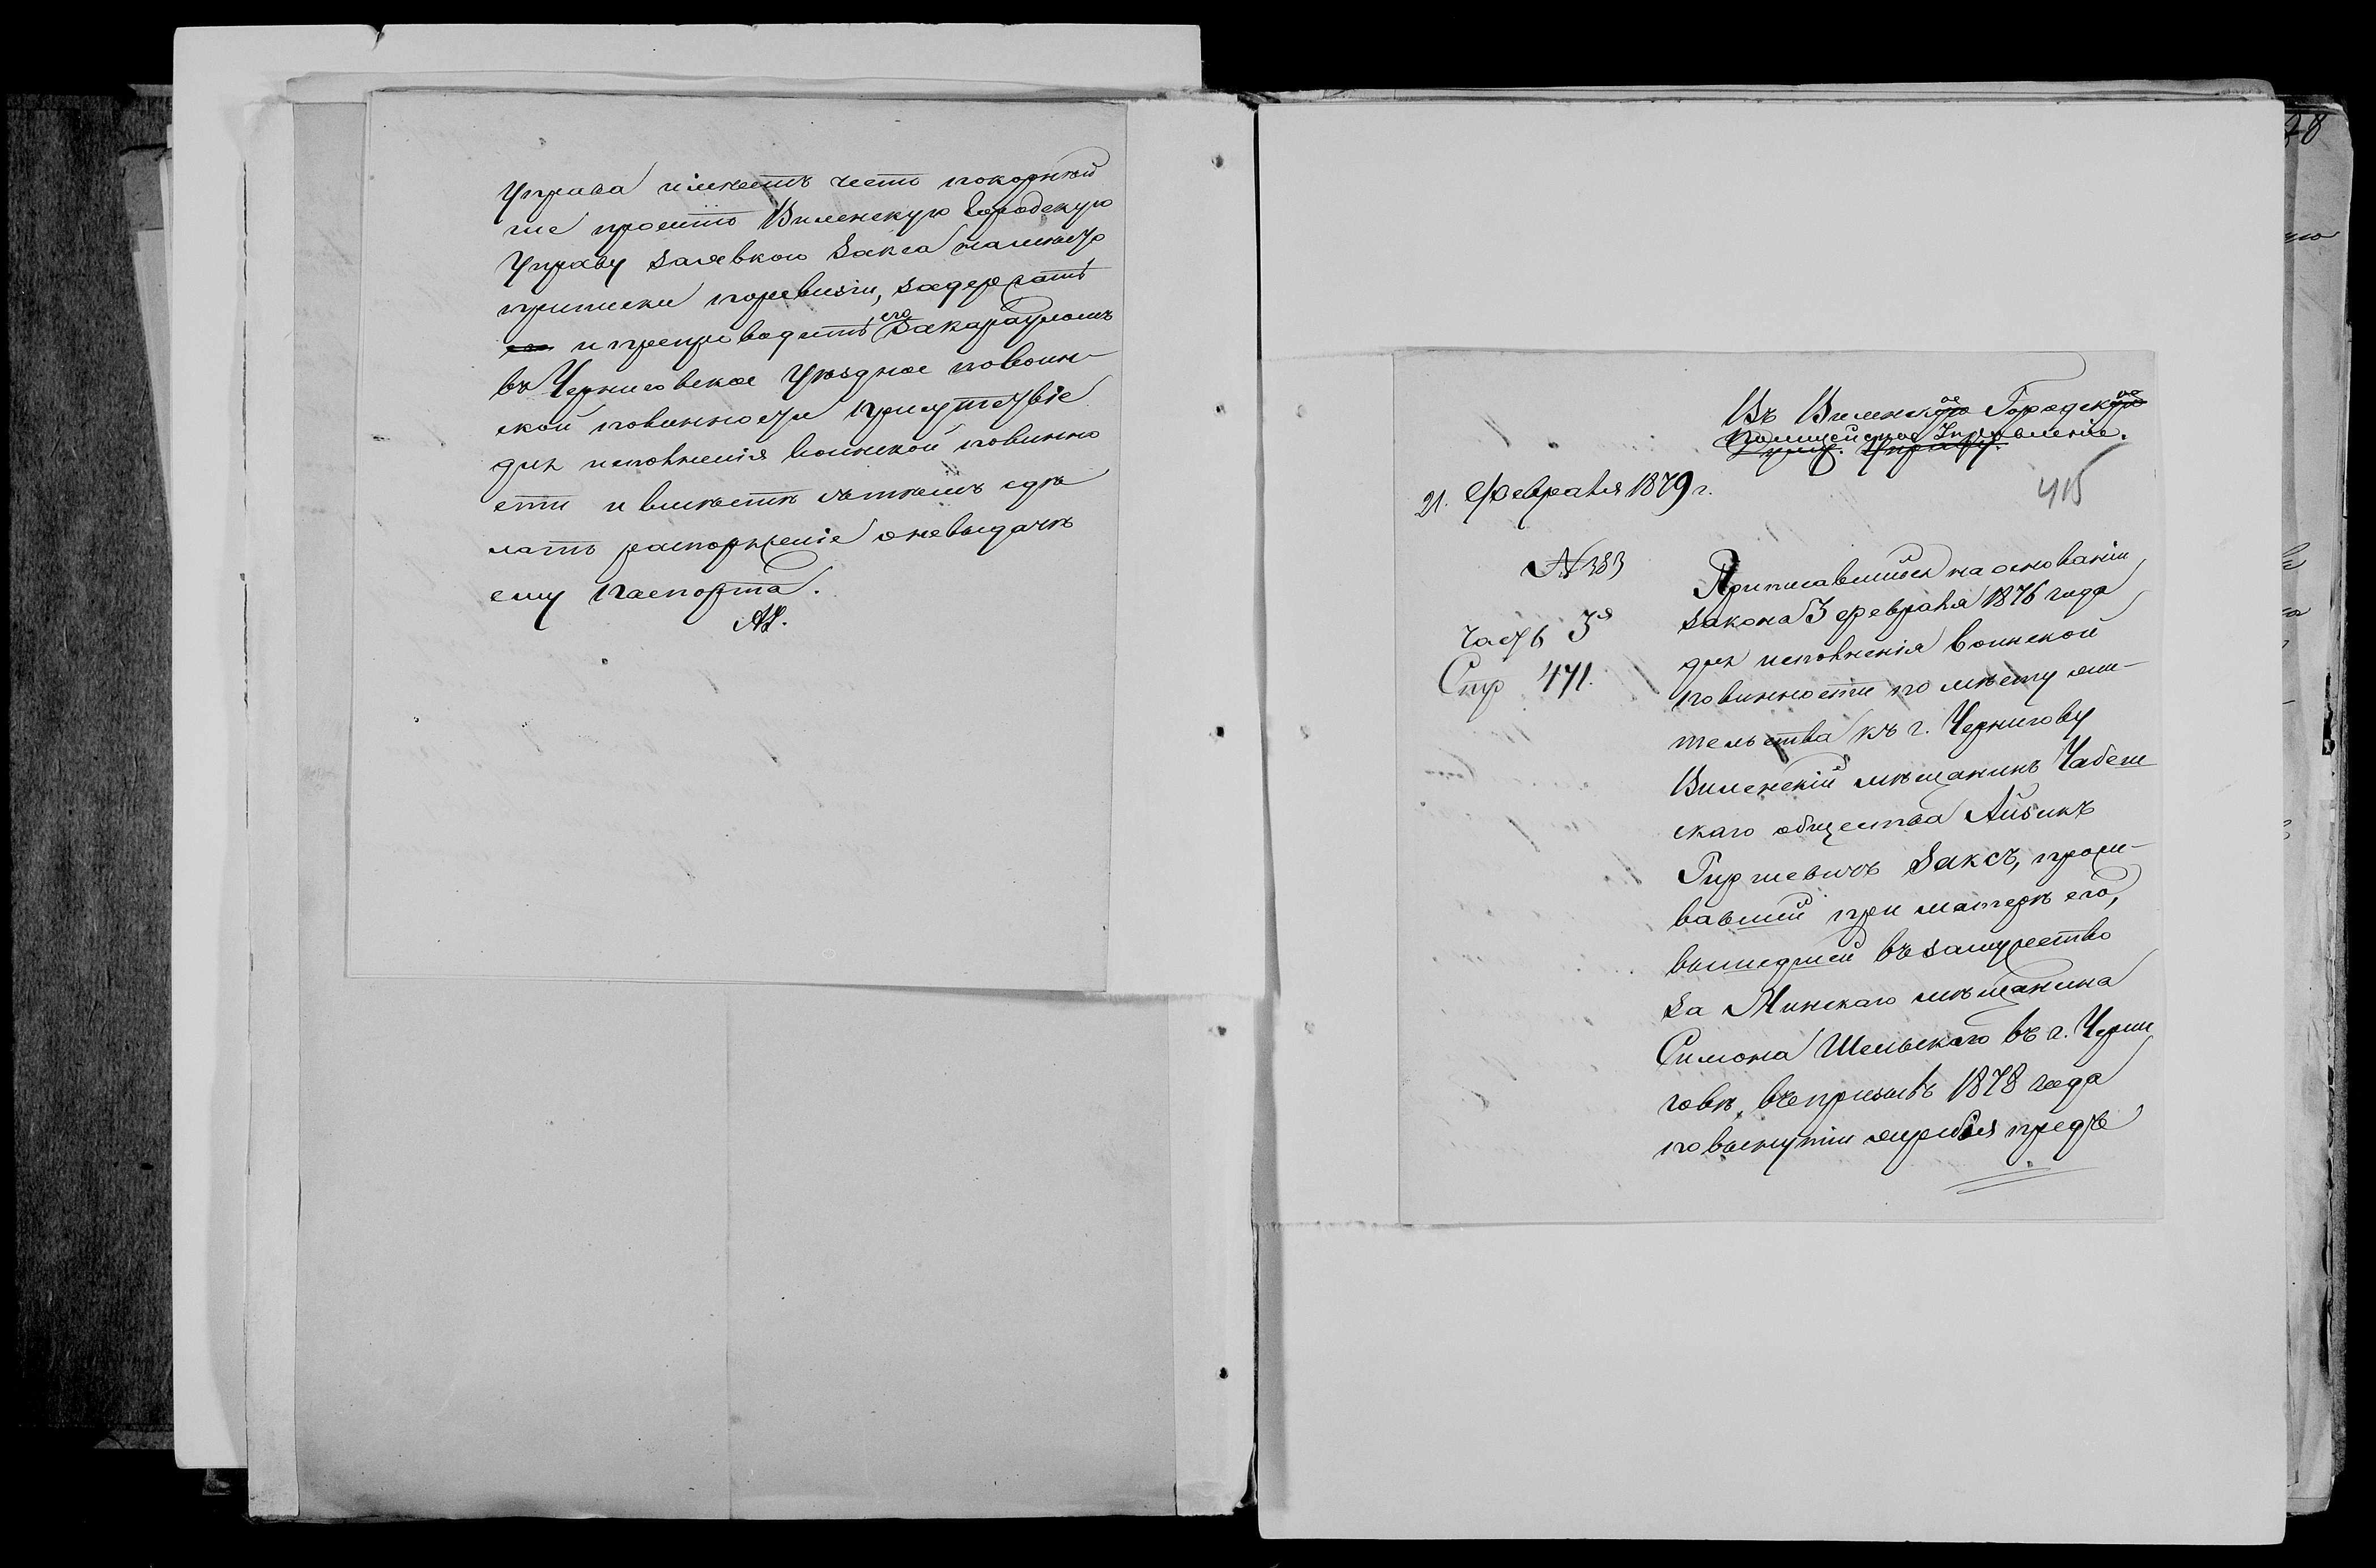 Управа имѣетъ честь покорнѣй
ше просить Виленскую Городскую
Управу заявкою Закса на мѣсто
приписки по ревизіи, задержать
и препроводить его за карауломъ
въ Черниговское Уѣздное по воин-
ской повинности присутствіе
для исполненія воинской повинно
сти и вмѣстѣ съ тѣмъ сдѣ
лать распоряженіе о невыдачѣ
ему паспорта.
28
Въ Виленское Городское
Полицейское Управленіе.
Думу. Управу.
415
21. Февраля 1879 г.
№ 383
часть 3я
Стр 471.
Приписавшійся на основаніи
закона 3 февраля 1876 года
для исполненія воинской
повинности по мѣсту жи-
тельства къ г. Чернигову
Виленскій мѣщанинъ Чабеш
скаго общества Айзикъ
Гиршевичъ Заксъ, прожи-
вавшій при матери его,
вышедшей въ замужество
за Минскаго мѣщанина
Симона Шельскаго въ г. Черни
говѣ, въ призывъ 1878 года
по вынутіи жеребья предъ